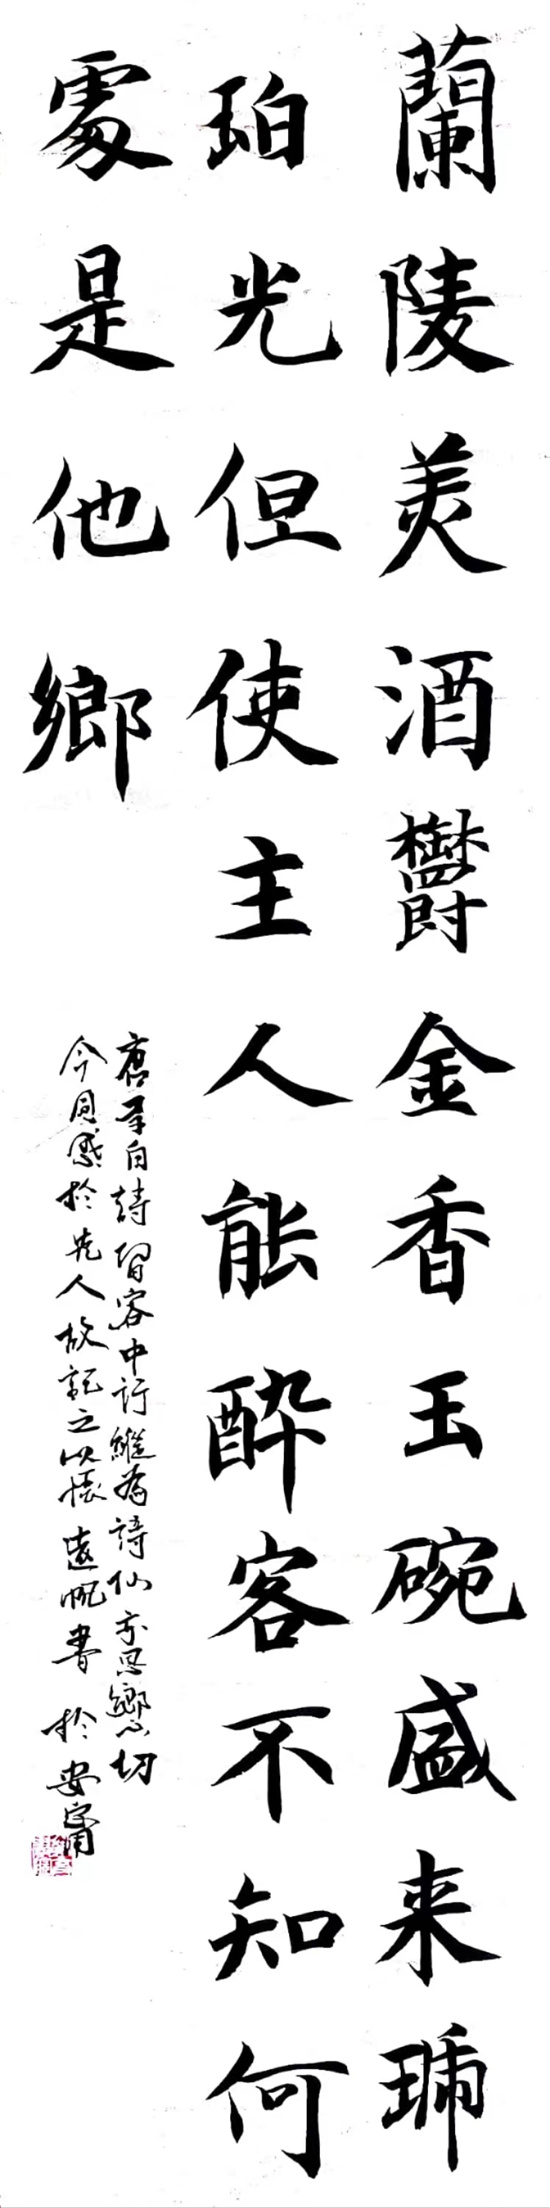 蘭陵美酒鬱金香玉碗盛来琥
珀光但使主人能醉客不知何
處是他鄉
唐李白詩習客中行縱為詩仙亦思鄉心切
今同感於先人故記之以懷 遠帆書 於安甯